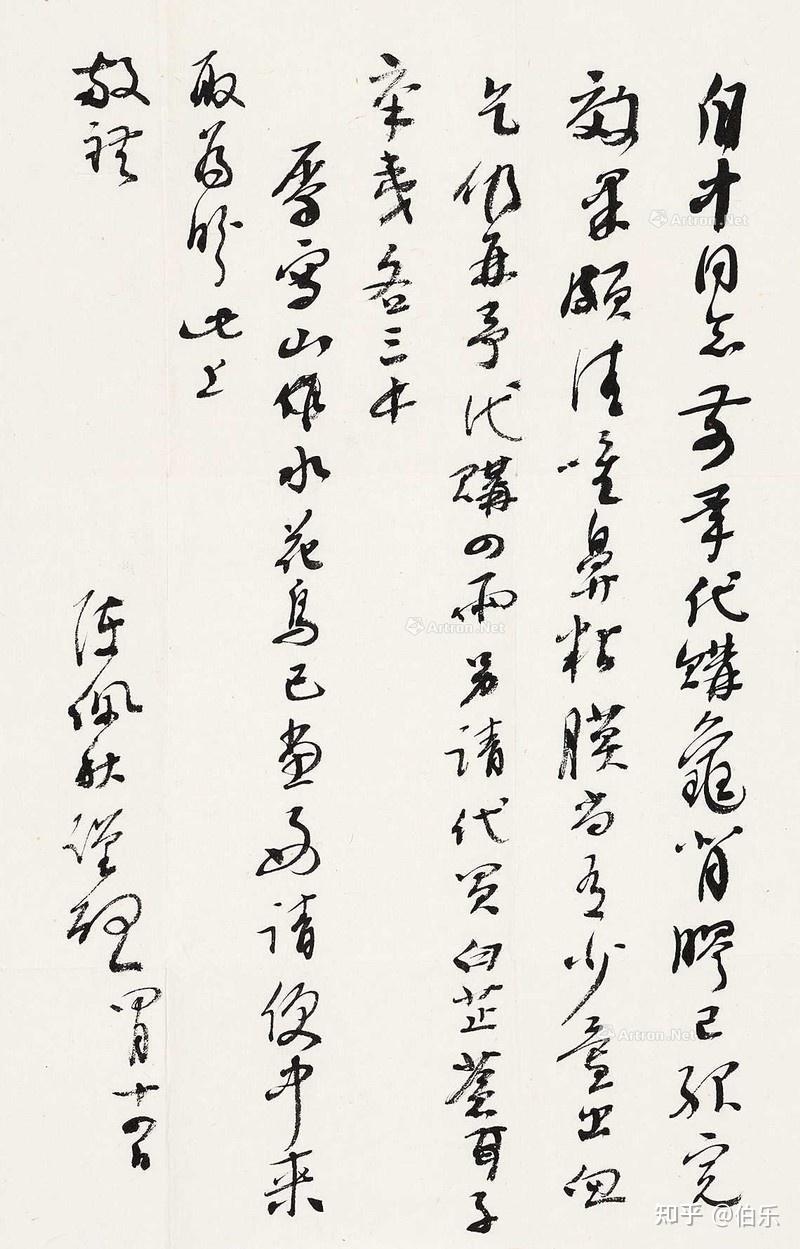 同志前承代購龜背膠已服完
效果頗佳唯鼻粘膜尚有少量出血
乞仍再予代購四兩另請代買白芷蒼耳子
辛夷各三
属寫山水花鳥已畫好請便中来
取為盼此上
敬禮
陳佩秋謹啓 四月十四日
Artron.Net
Artron.Net
Artron.Net
知乎 @伯乐